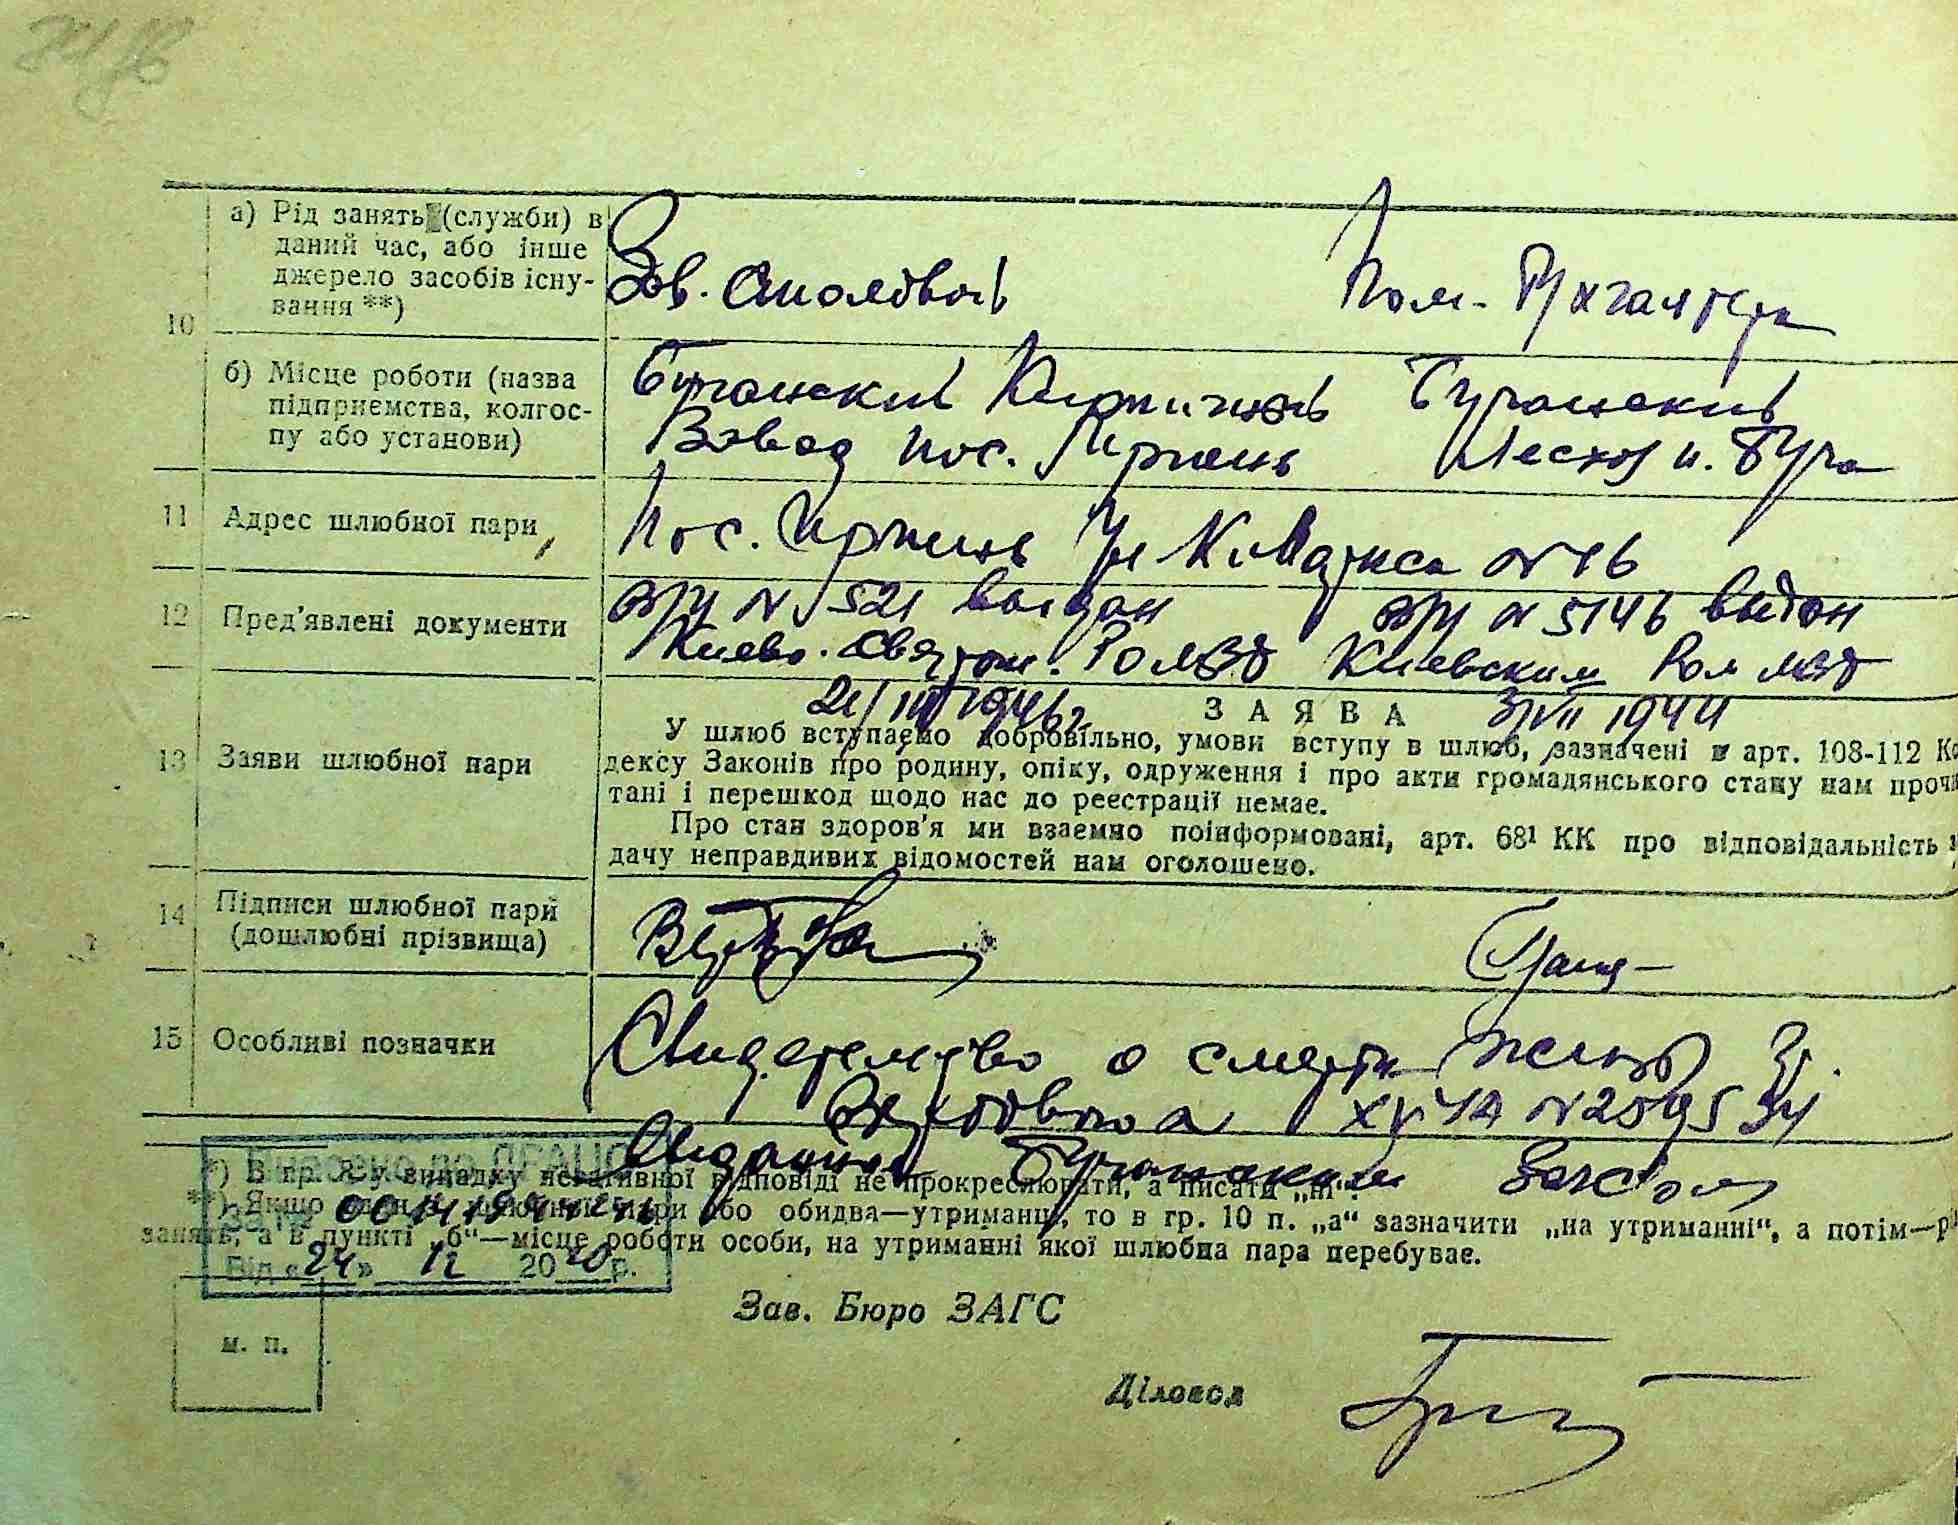 а) Рід занять (служби) в
даний час, або інше
джерело засобів існу-
вання **)
Зав. Столовой
Пом. Бухгалтера
10
б) Місце роботи (назва
підприємства, колгос-
пу або установи)
Бучанский Кирпичный
Завод пос. Ирпень
Бучанский
Лесхоз п. Буча
11 Адрес шлюбної пари
Пос. Ирпень Ул К. Маркса №16
12 Пред'явлені документи
N 521 выдан
Киево. Святош. РОМВД
21/III 1946 г
N 5146 выдан
Киевским Ром МВД
3/VII 1944
ЗАЯВА
13 Заяви шлюбної пари
У шлюб вступаємо добровільно, умови вступу в шлюб, зазначені в арт. 108-112 Ко
дексу Законів про родину, опіку, одруження і про акти громадянського стану нам проч
тані і перешкод щодо нас до реєстрації немає.
Про стан здоров'я ми взаємно поінформовані, арт. 68¹ КК про відповідальність
дачу неправдивих відомостей нам оголошено.
14 Підписи шлюбної пари
(дошлюбні прізвища)
15 Особливі позначки
Свидетельство о смерти жены
N 259534
Выданное Бучанским Загсом
*) В гр. 8 у випадку негативної відповіді не прокреслювати, а писати „ні".
**) Якщо один з шлюбної пари або обидва—утриманці, то в гр. 10 п. „а" зазначити „на утриманні", а потім—р
занять, а в пункті „б"—місце роботи особи, на утриманні якої шлюбна пара перебуває.
Від «24» 12 2020 р.
Зав. Бюро ЗАГС
м. п.
Діловод